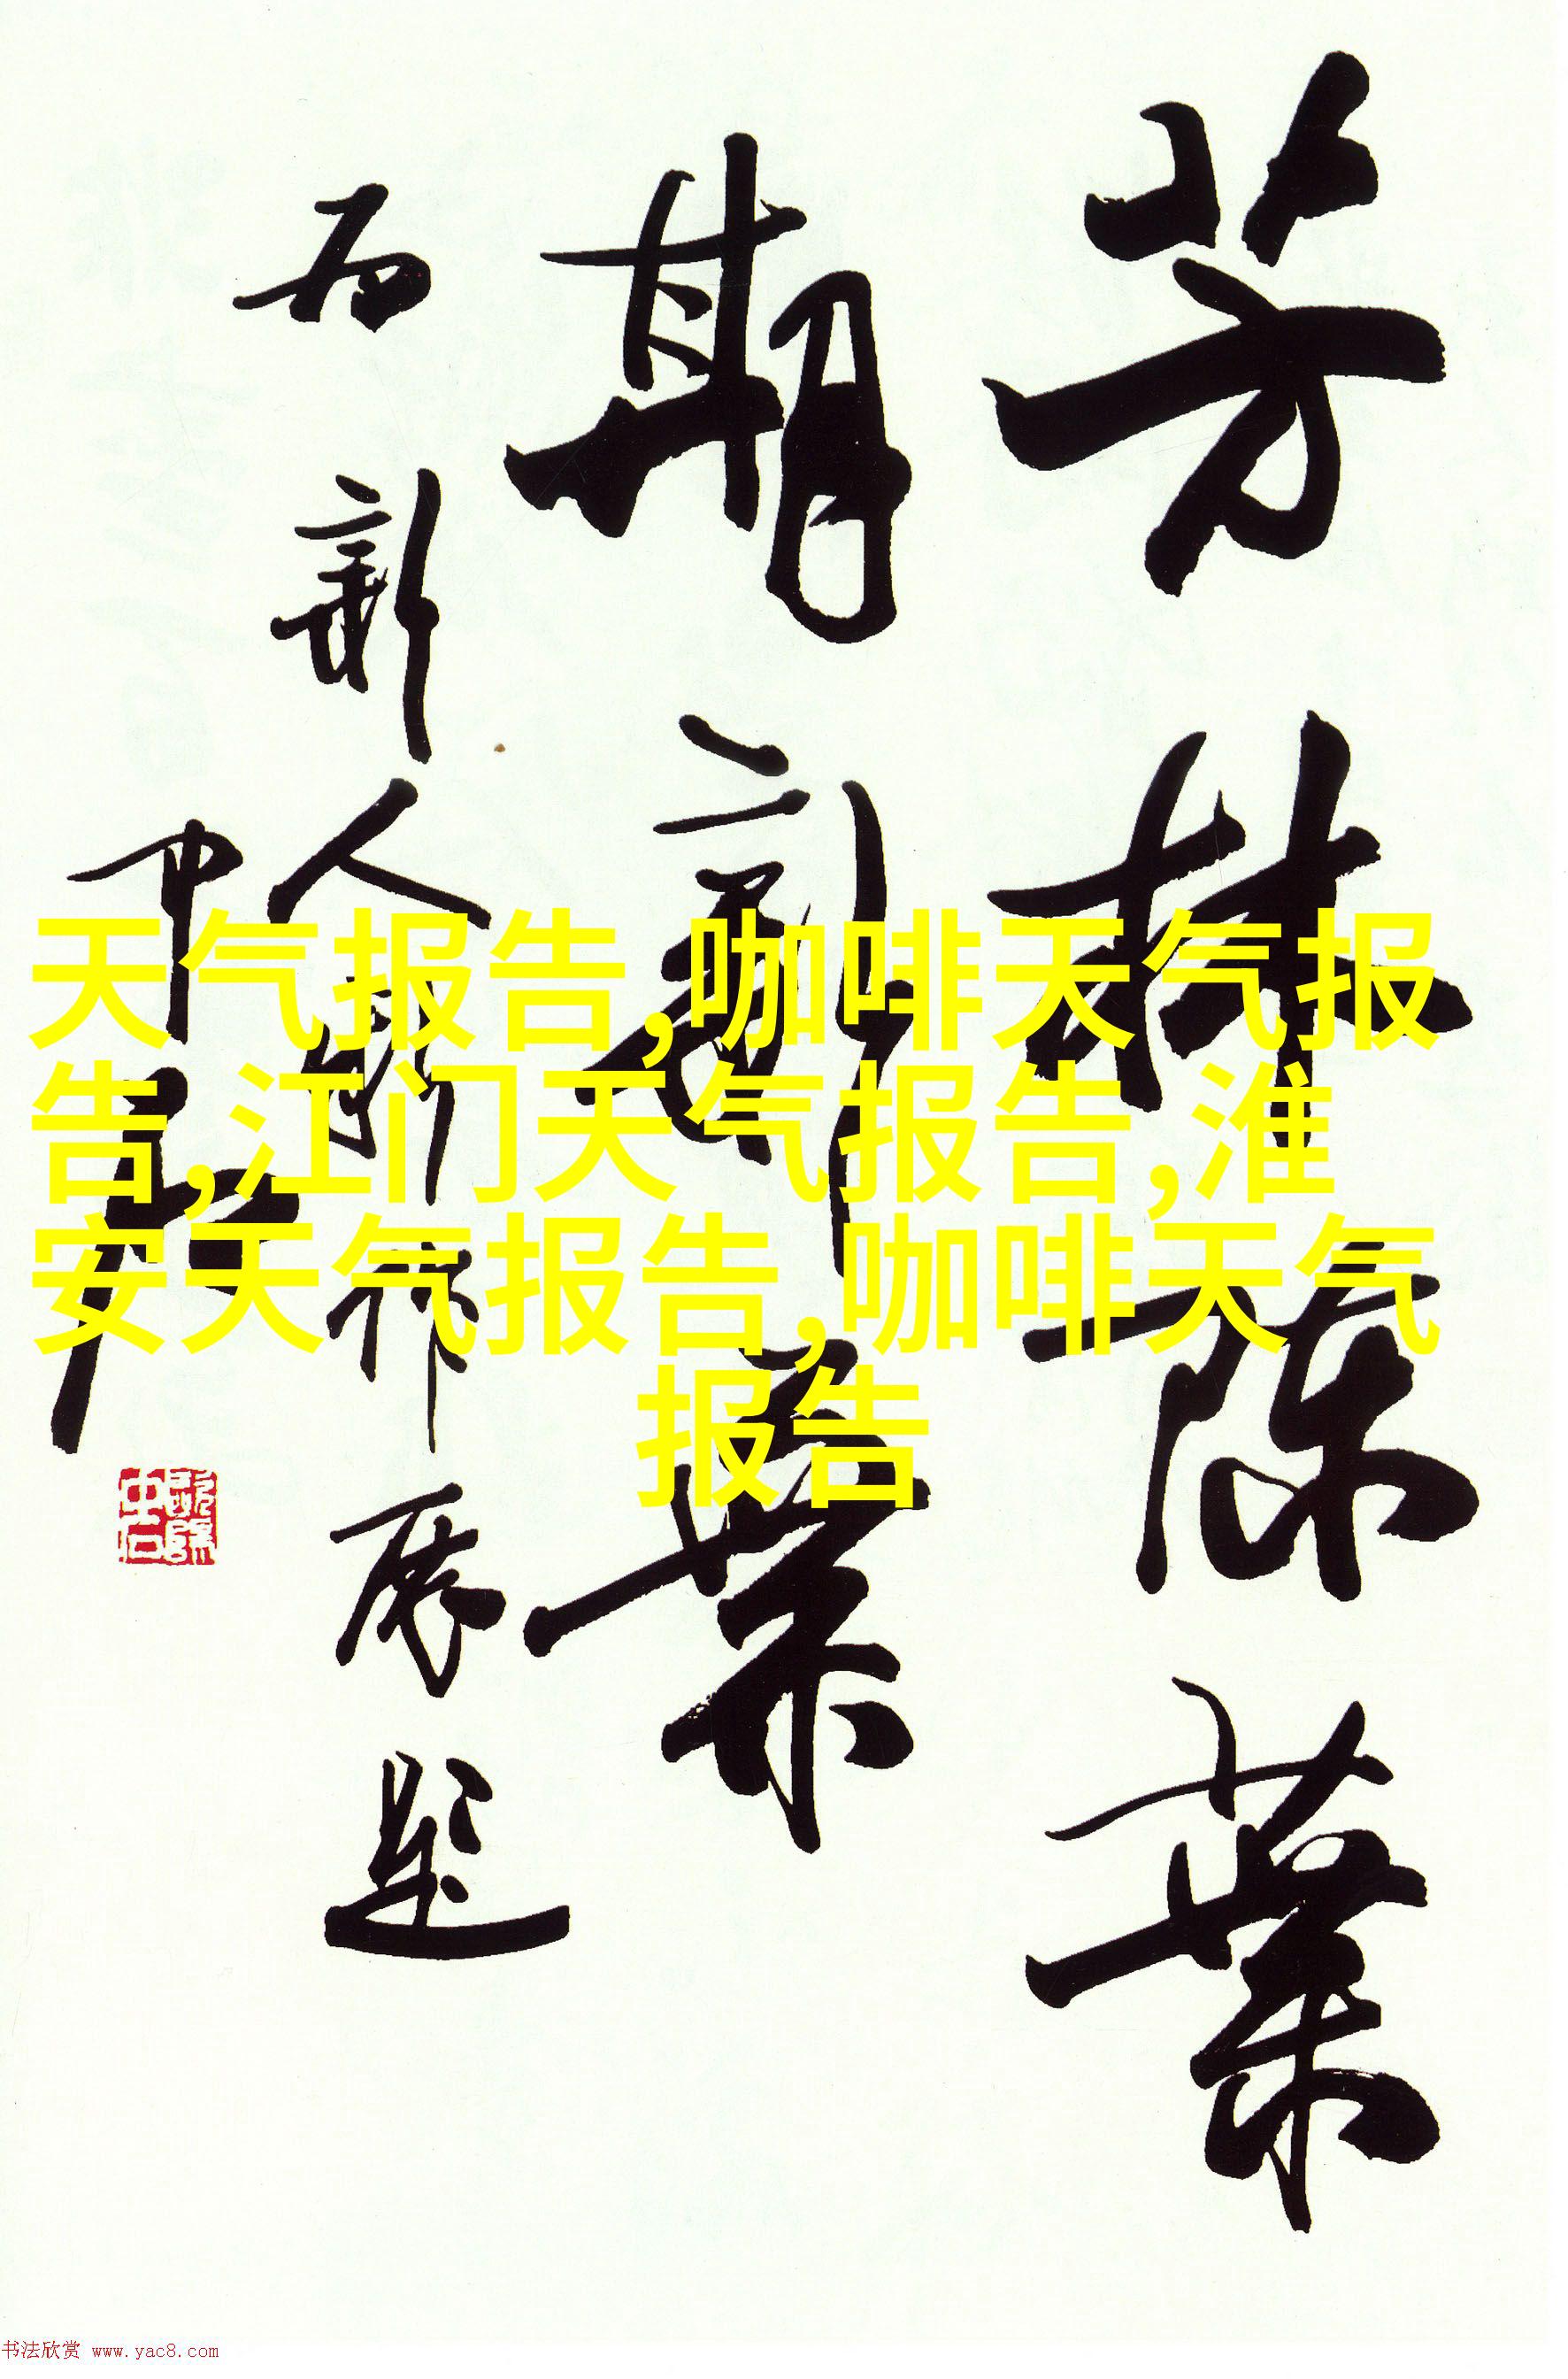 芳林陈叶
期新叶
为新人新作展题
中石
天气报告,咖啡天气报
告,江门天气报告,淮
安天气报告,咖啡天气
报告
书法欣赏 www.yac8.com